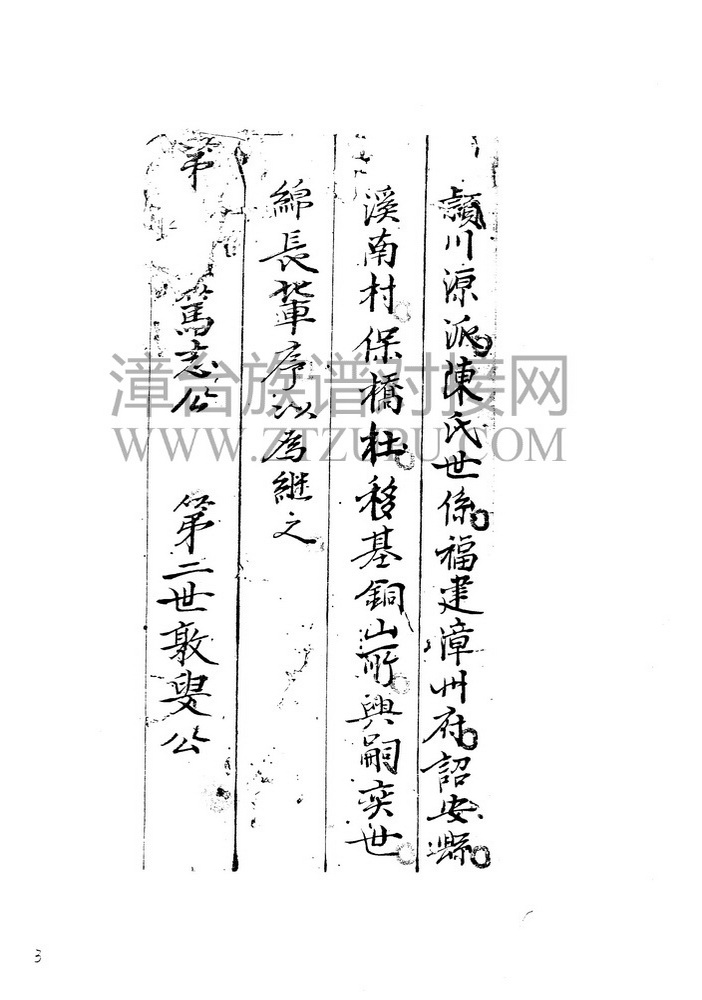 潁川源派陳氏世係福建漳州府詔安縣
溪南村保橋杜移基銅山所興嗣奕世
綿長輩序以為継之
第 篤志公 第二世敦叟公
漳台族谱对接网
WWW.ZTZUPU.COM
3